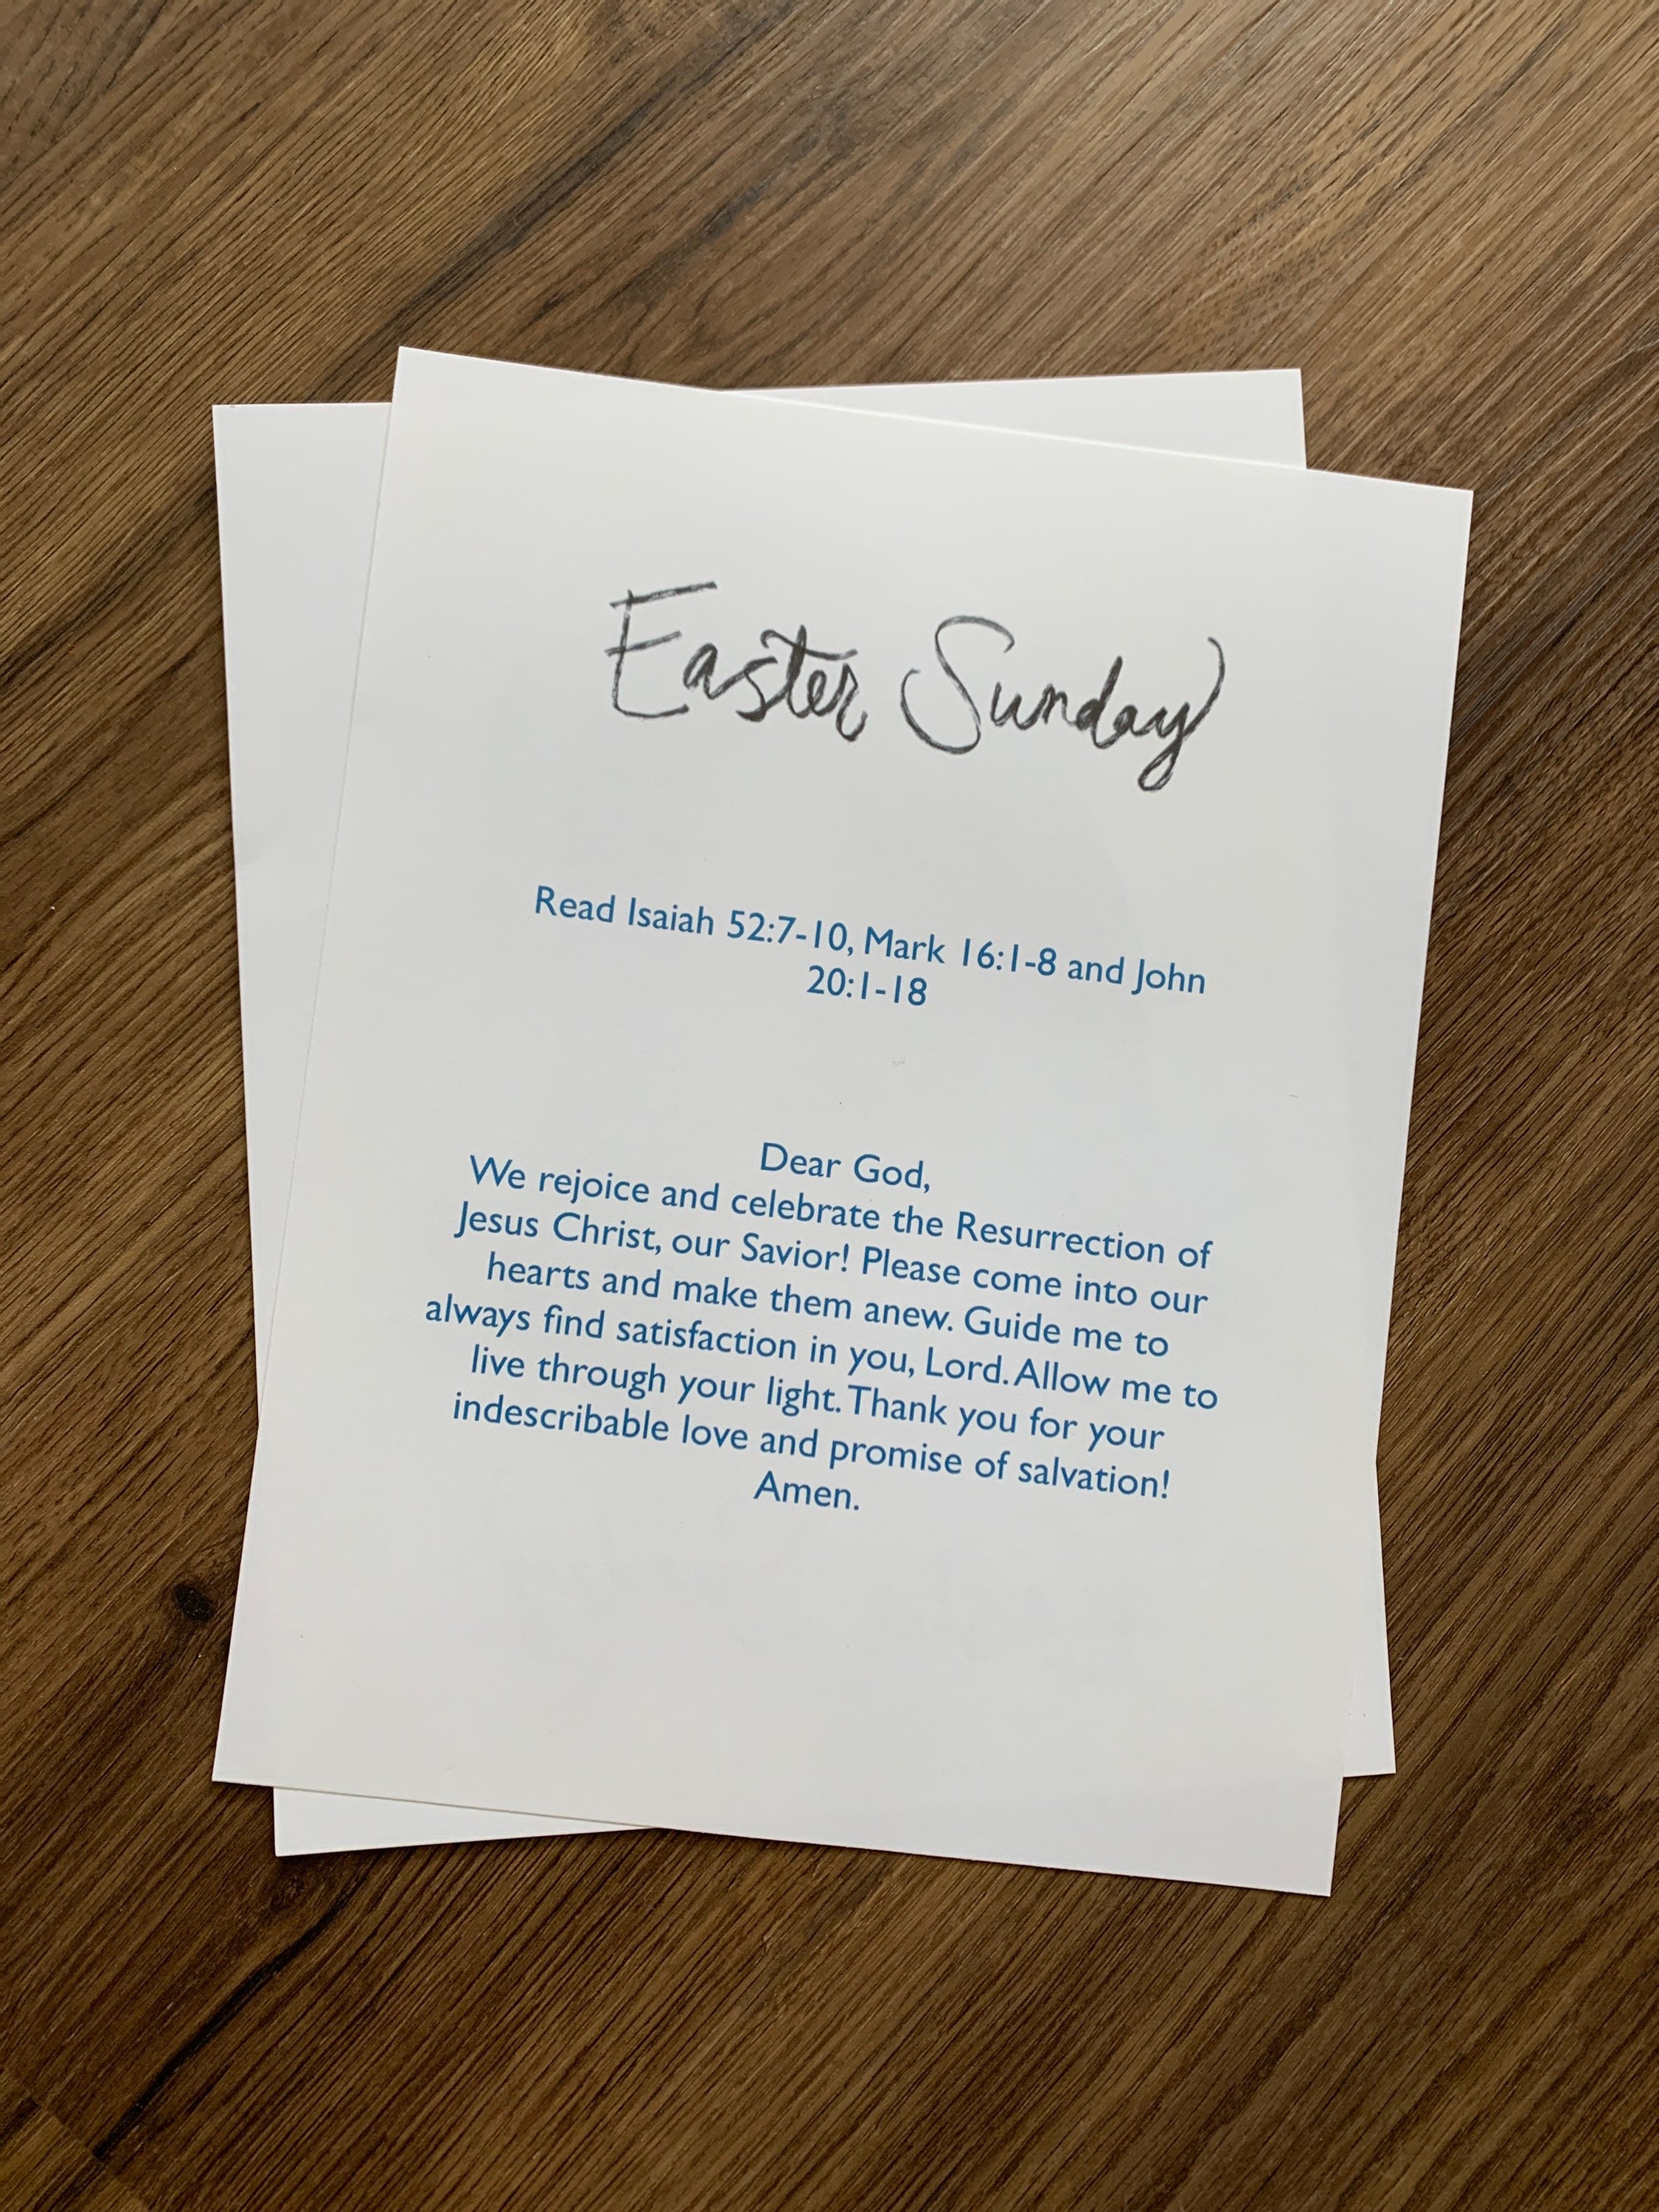 Easter Sunday
Read Isaiah 52:7-10, Mark 16:1-8 and John
20:1-18
Dear God,
We rejoice and celebrate the Resurrection of
Jesus Christ, our Savior! Please come into our
hearts and make them anew. Guide me to
always find satisfaction in you, Lord. Allow me to
live through your light. Thank you for your
indescribable love and promise of salvation!
Amen.